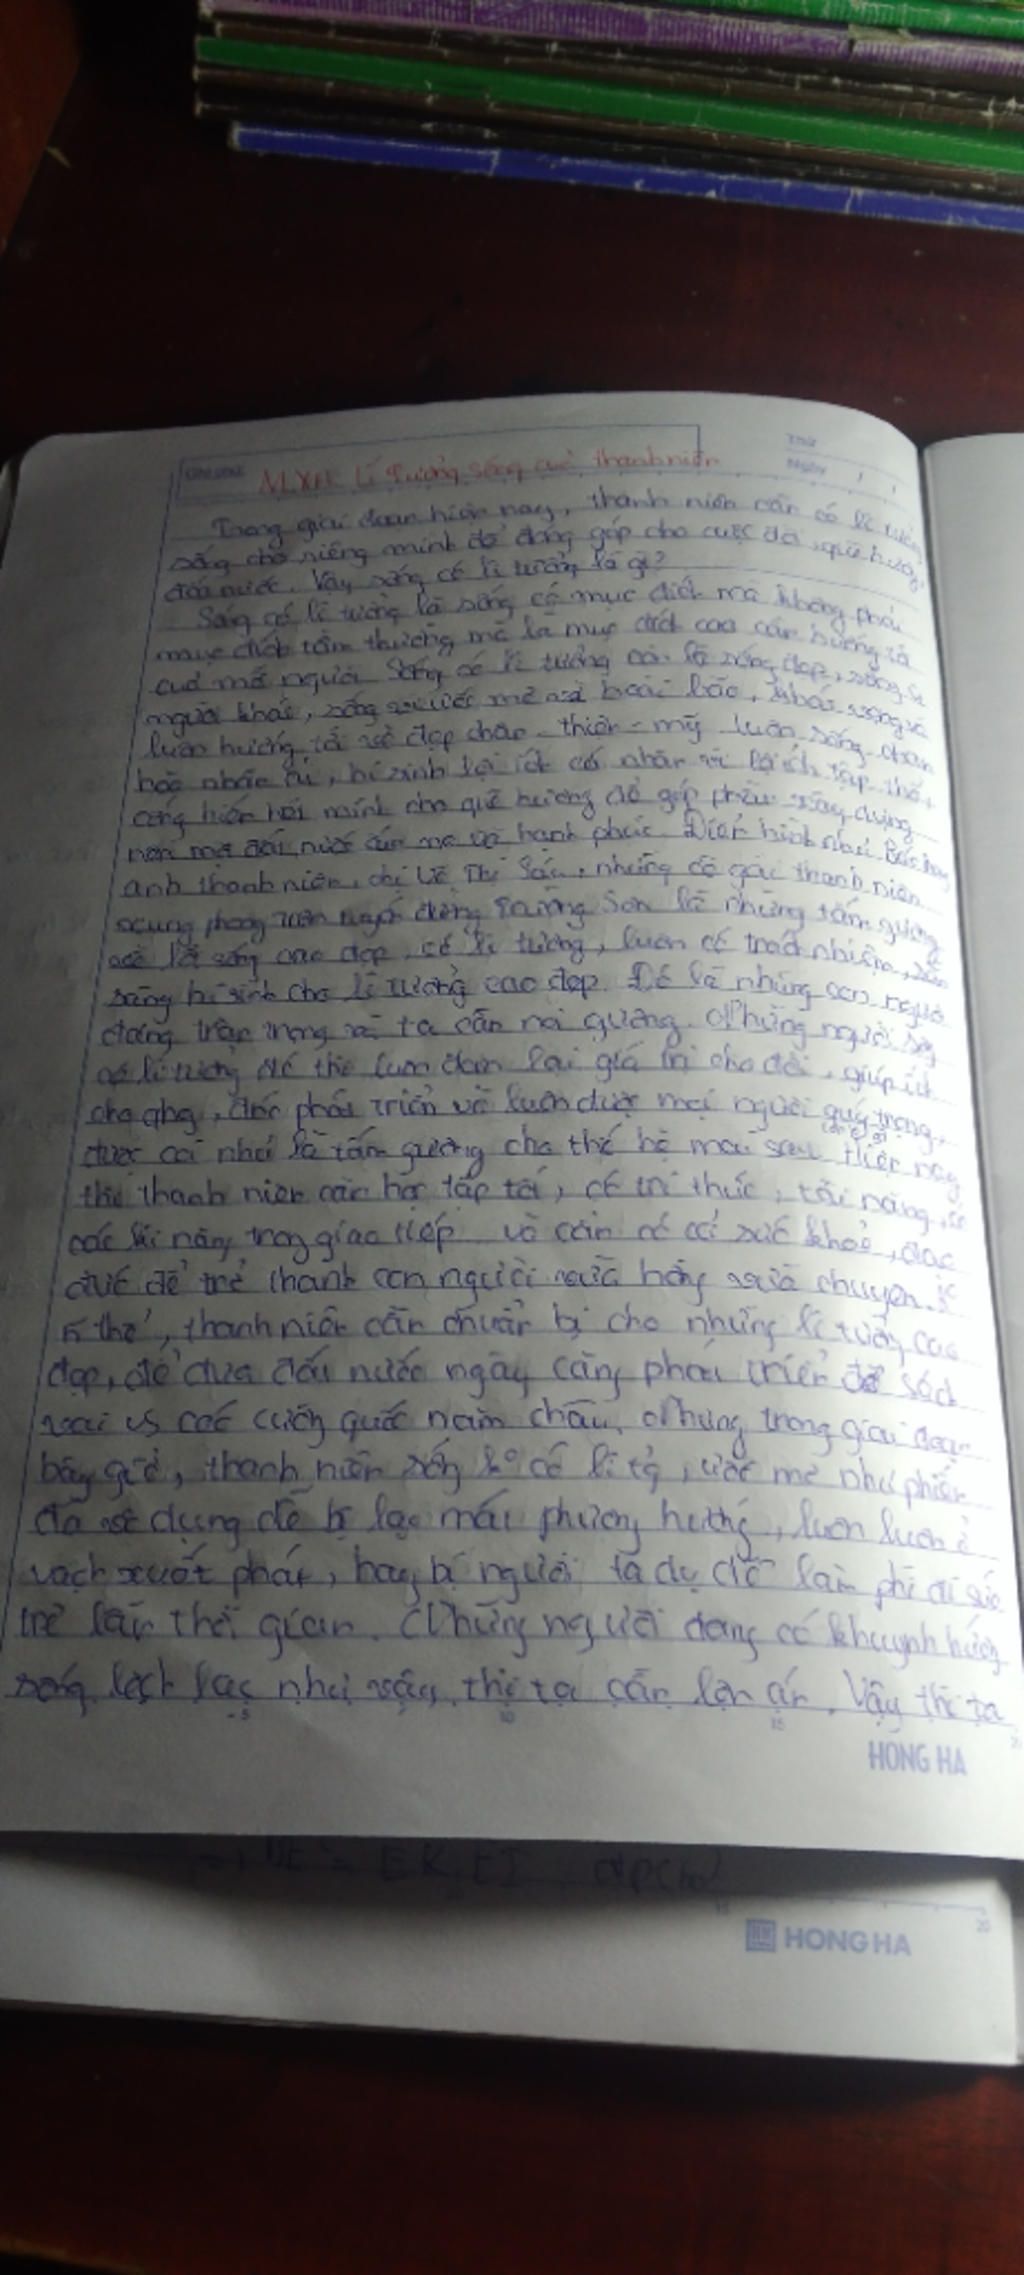 Thứ
Ngày / /
N.L.X.H: Lí tưởng sống của thanh niên
Trong giai đoạn hiện nay, thanh niên cần có lí tưởng
sống cho riêng mình để đóng góp cho cuộc đời, quê hương,
đất nước. Vậy sống có lí tưởng là gì?
Sống có lí tưởng là sống có mục đích mà không phải
mục đích tầm thường mà là mục đích cao cả hướng tới
của mỗi người. Sống có lí tưởng còn là sống đẹp, sống
người khác, sống ước mơ và hoài bão, khát vọng và
luôn hướng tới vẻ đẹp chân - thiện - mỹ luôn sống chan
hoà nhân ái, hi sinh lợi ích cá nhân vì lợi ích tập thể,
cống hiến hết mình cho quê hương để góp phần xây dựng
nên một đất nước ấm no và hạnh phúc. Điển hình như: Bác
anh thanh niên, chị Võ Thị Sáu, những cô gái thanh niên
xung phong trên tuyến đường Trường Sơn là những tấm gương
về lối sống cao đẹp, có lí tưởng, luôn có trách nhiệm, sẵn
sàng hi sinh cho lí tưởng cao đẹp. Đó là những con người
đáng trân trọng và ta cần noi gương. Những người sống
có lí tưởng đó thì luôn đem lại giá trị cho đời, giúp ích
phát triển và luôn được mọi người quý trọng,
được coi như là tấm gương cho thế hệ mai sau. Hiện nay
thì thanh niên cần học tập tốt, có tri thức, tài năng, có
các kĩ năng trong giao tiếp và cần có cả sức khoẻ, đạo
đức để trở thành con người vừa hồng vừa chuyên.
thế, thanh niên cần chuẩn bị cho những lí tưởng cao
đẹp, để đưa đất nước ngày càng phát triển để sánh
vai vs các cường quốc năm châu. Nhưng trong giai đoạn
bây giờ, thanh niên sống k° có lí tg, ước mơ như phiến
đá vô dụng dễ bị lạc mất phương hướng, luôn luôn ở
vạch xuất phát, hay bị người ta dụ dỗ làm phí đi sức
trẻ lẫn thời gian. Những người đang có khuynh hướng
sống lệch lạc như vậy, thì ta cần lên án. Vậy thì ta
5
10
15
HONG HA
15
20
HONG HA